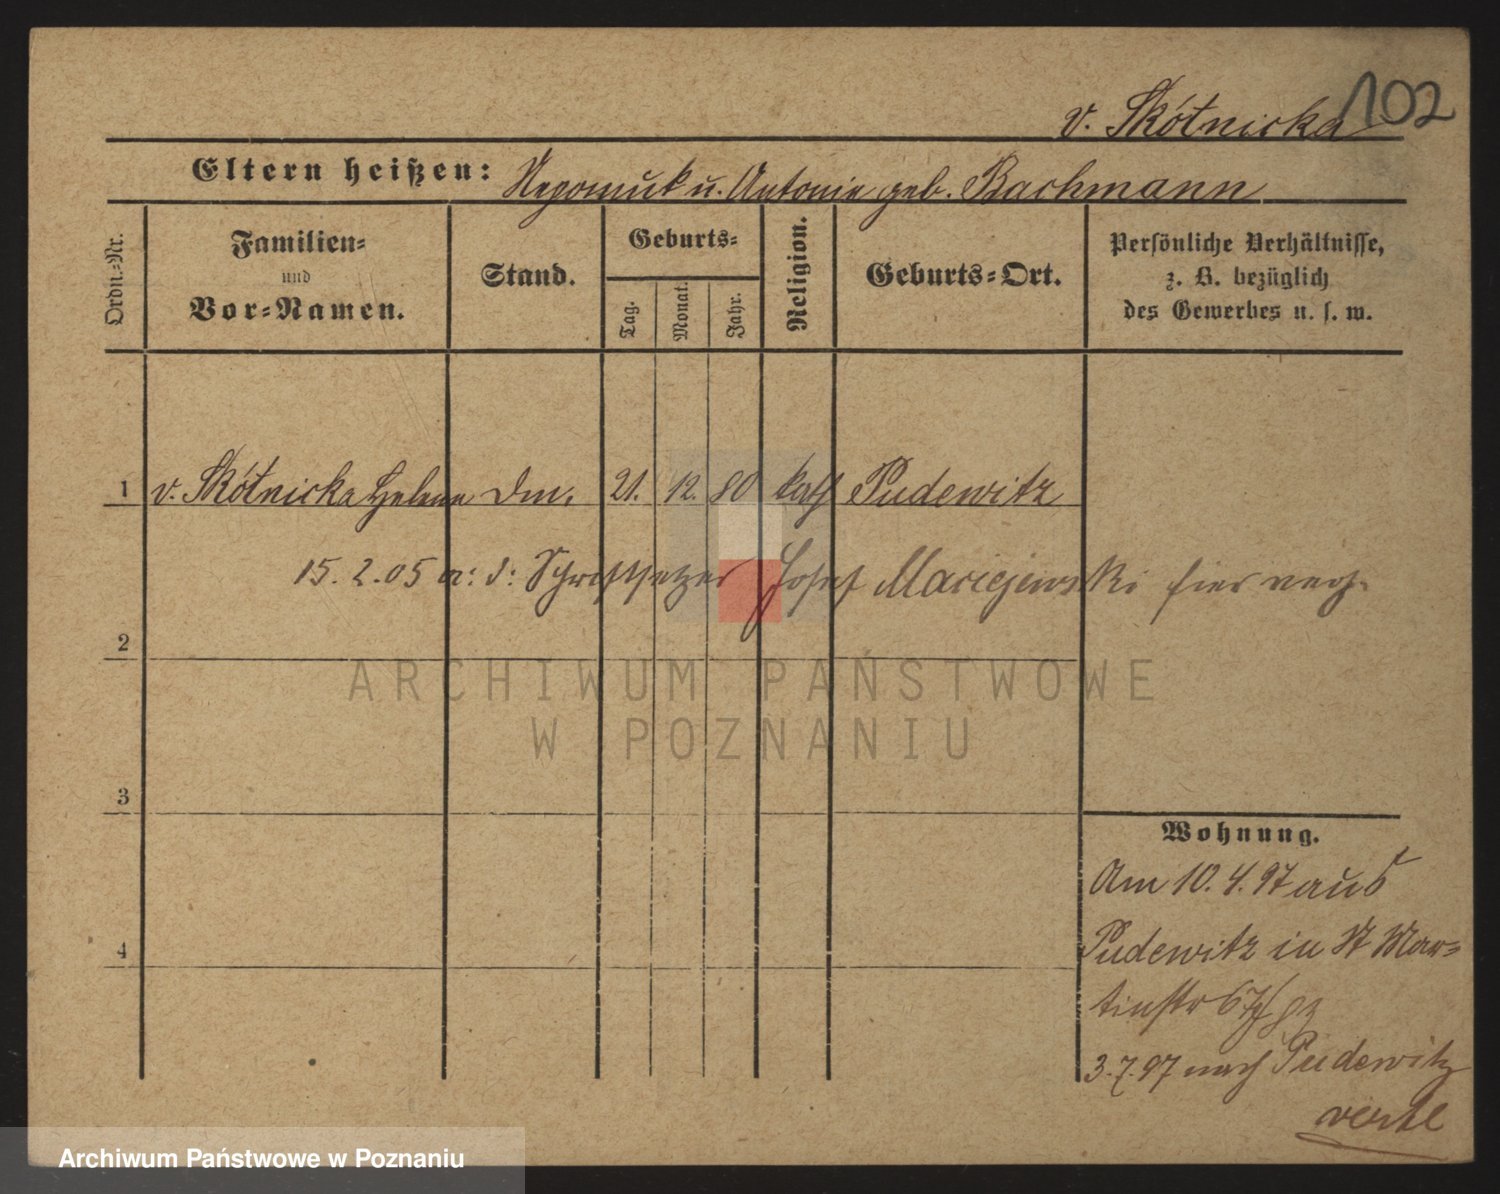 102
v. Skótnicka
Eltern heißen: Nepomuk u. Antonie geb. Bachmann
Ordn.-Nr.
Familien-
und
Vor-Namen.
Stand.
Geburts-
Tag.
Monat.
Jahr.
Religion.
Geburts-Ort.
Persönliche Verhältnisse,
z. B. bezüglich
des Gewerbes u. s. w.
1 v. Skótnicka Helene Dm. 21. 12. 80 kath Pudewitz
15. 2. 05 a: d: Schriftsetzer Josef Maciejewski hier verh.
2
ARCHIWUM PAŃSTWOWE
W POZNANIU
3
Wohnung.
Am 10. 4. 97 aus
Pudewitz in St Mar-
4
tinstr 67
3. 7. 97 nach Pudewitz
verte
Archiwum Państwowe w Poznaniu